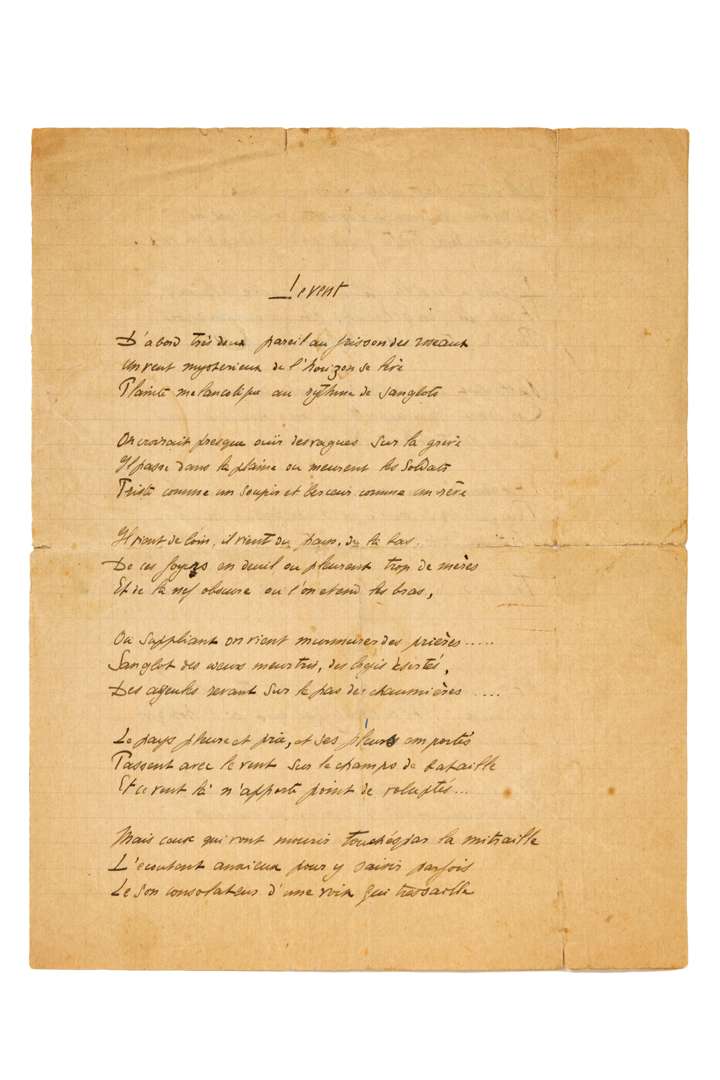 Le vent
D'abord très doux pareil au frisson des roseaux
Un vent mysterieux de l'horizon se lève
Plainte melancolique au rythme de sanglots
On croirait presque ouir des vagues sur la grève
Il passe dans la plaine ou meurent les soldats
Triste comme un soupir et berceur comme un rêve
Il vient de loin, il vient du pays, de là bas.
De ces foyers en deuil ou pleurent trop de mères
Et de la nef obscure ou l'on etend les bras,
Ou suppliant on vient murmurer des prières.....
Sanglot des coeurs meurtris, des logis désertés,
Des ayeules revant sur le pas des chaumières ....
Le pays pleure et prie, et ses pleurs emportés
Passent avec le vent sur le champs de bataille
Et ce vent là n'apporte point de voluptés...
Mais ceux qui vont mourir touchés par la mitraille
L'ecoutent anxieux pour y saisir parfois
Le son consolateur d'une voix qui tressaille